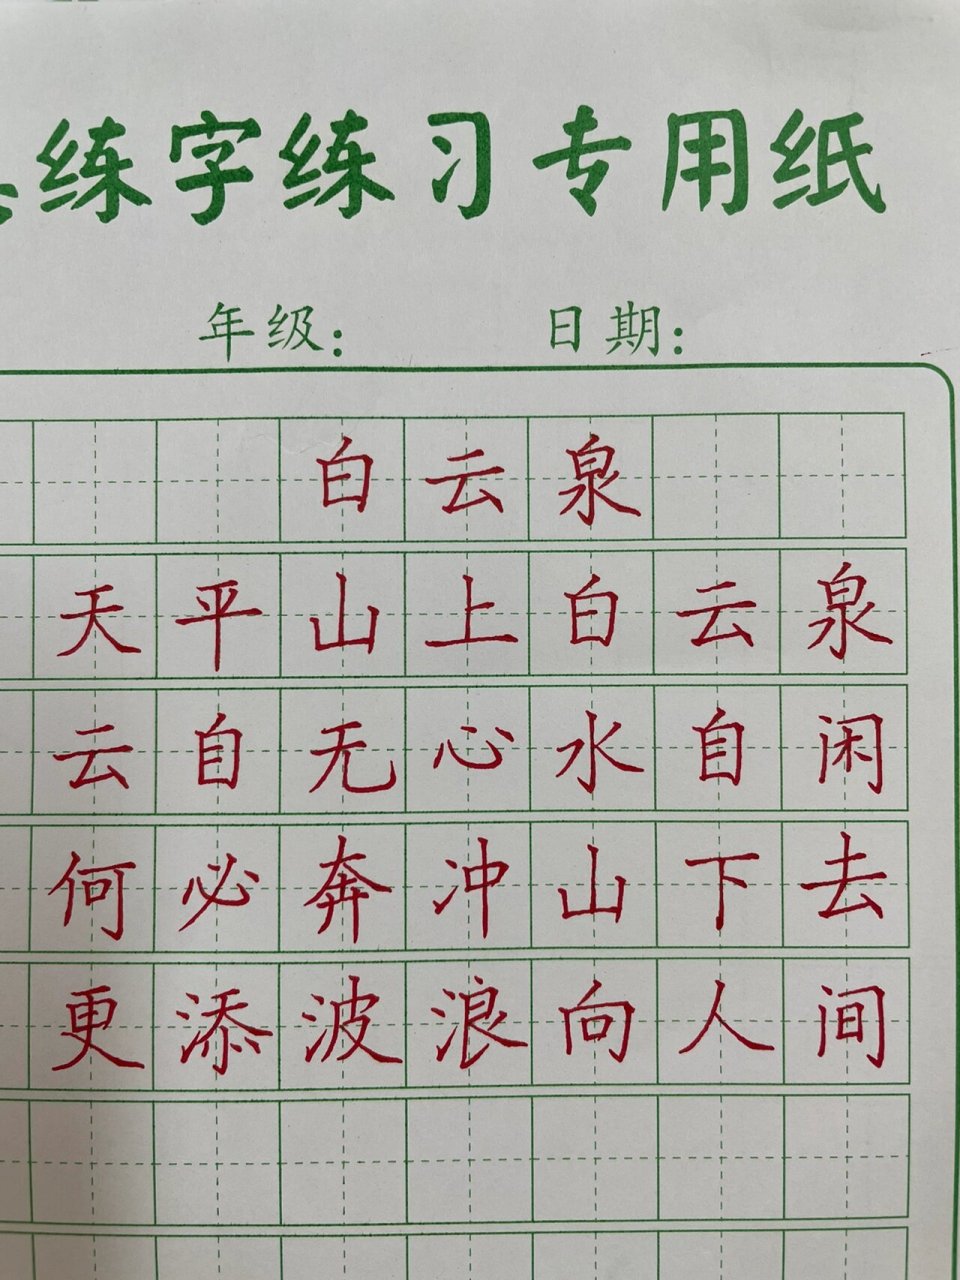 练字练习专用纸
年级: 日期:
白云泉
天平山上白云泉
云自无心水自闲
何必奔冲山下去
更添波浪向人间